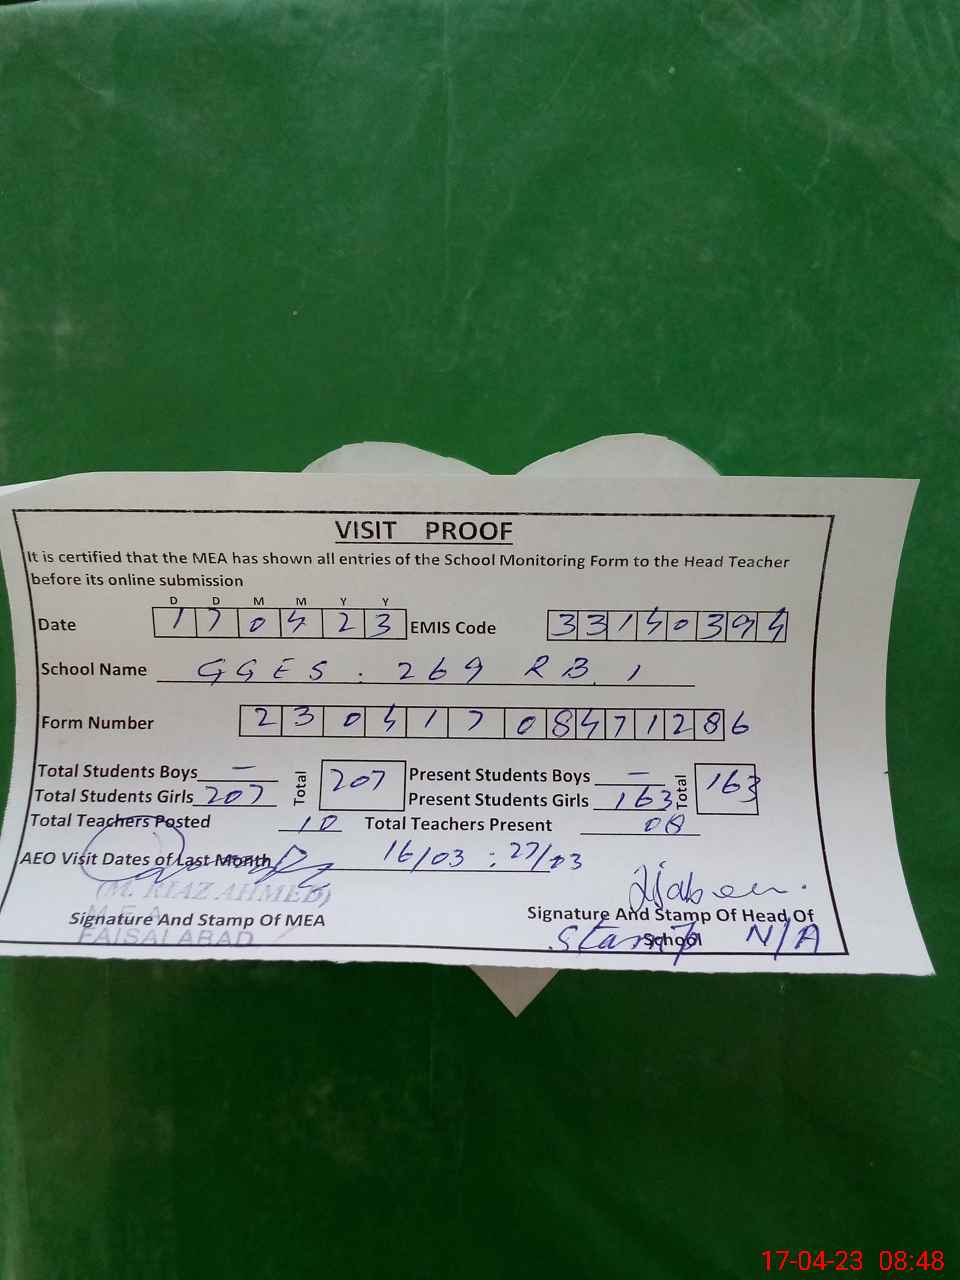 VISIT PROOF
It is certified that the MEA has shown all entries of the School Monitoring Form to the Head Teacher
before its online submission
D D M M Y Y
Date 170423 EMIS Code 33140394
School Name GGES. 269 RB 1
Form Number 23041708471286
Total Students Boys — Total 207 Present Students Boys — Total 163
Total Students Girls 207 Present Students Girls 163
Total Teachers Posted 10 Total Teachers Present 08
AEO Visit Dates of Last Month 16/03 : 27/03
(M. RIAZ AHMED)
Signature And Stamp Of MEA Signature And Stamp Of Head Of
School
MEA
FAISALABAD Stamp N/A
17-04-23 08:48